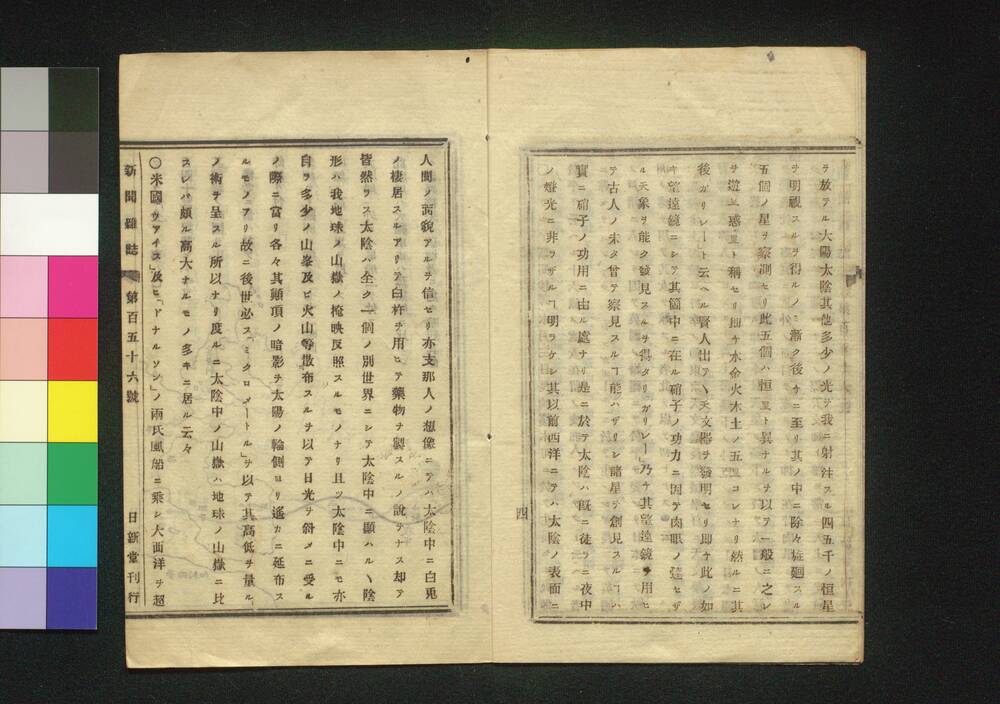 ヲ放テル大陽太陰其他多少ノ光ヲ我ニ射注スル四五千ノ恒星
ヲ明視スルヲ得ルノミ漸ク後チニ至リ其ノ中ニ除々旋廻スル
五個ノ星ヲ察測セリ此五個ハ恒星ト異ナルヲ以テ一般ニ之レ
ヲ遊星惑星ト稱セリ即チ水金火木土ノ五星コレナリ然ルニ其
後ガリレー」ト云ヘル賢人出テヽ天文器ヲ發明セリ即チ此ノ如
キ望遠鏡ニシテ其箇中ニ在ル硝子ノ功力ニ因テ肉眼ノ達セザ
ル天象ヲ能ク發見スルヲ得タリ「ガリレー」乃チ其望遠鏡ヲ用ヒ
テ古人ノ未タ曾テ察見スルヿ能ハザリシ諸星ヲ創見スルヿハ
實ニ硝子ノ功用ニ由ル處ナリ是ニ於テ太陰ハ既ニ徒ラニ夜中
ノ燈光ニ非ラザルヿ明ラケシ其以前西洋ニテハ太陰ノ表面ニ
四
人間ノ面貌アルヲ信セリ亦支那人ノ想像ニテハ太陰中ニ白兎
ノ棲居スルアリテ白杵ヲ用ヒテ藥物ヲ製スルノ說ヲナス却テ
皆然ラス太陰ハ全ク一個ノ別世界ニシテ太陰中ニ顯ハルヽ陰
形ハ我地球ノ山嶽ノ掩映反照スルモノナリ且ツ太陰中ニモ亦
自ラ多少ノ山峯及ビ火山等散布スルヲ以テ日光ヲ斜メニ受ル
ノ際ニ當リ各々其巓頂ノ暗影ヲ太陽ノ輪側ヨリ遙カニ延布ス
ルモノアリ故ニ後世必ス「ミクロメートル」ヲ以テ其高低ヲ量ル
ノ術ヲ呈スル所以ナリ度ルニ太陰中ノ山嶽ハ地球ノ山嶽ニ比
スレハ頗ル高大ナルモノ多キニ居ル云々
〇米國「ウアイス」及ヒ「ドナルソン」ノ兩氏風船ニ乘シ大西洋ヲ超
新聞雜誌 第百五十六號 日新堂刊行